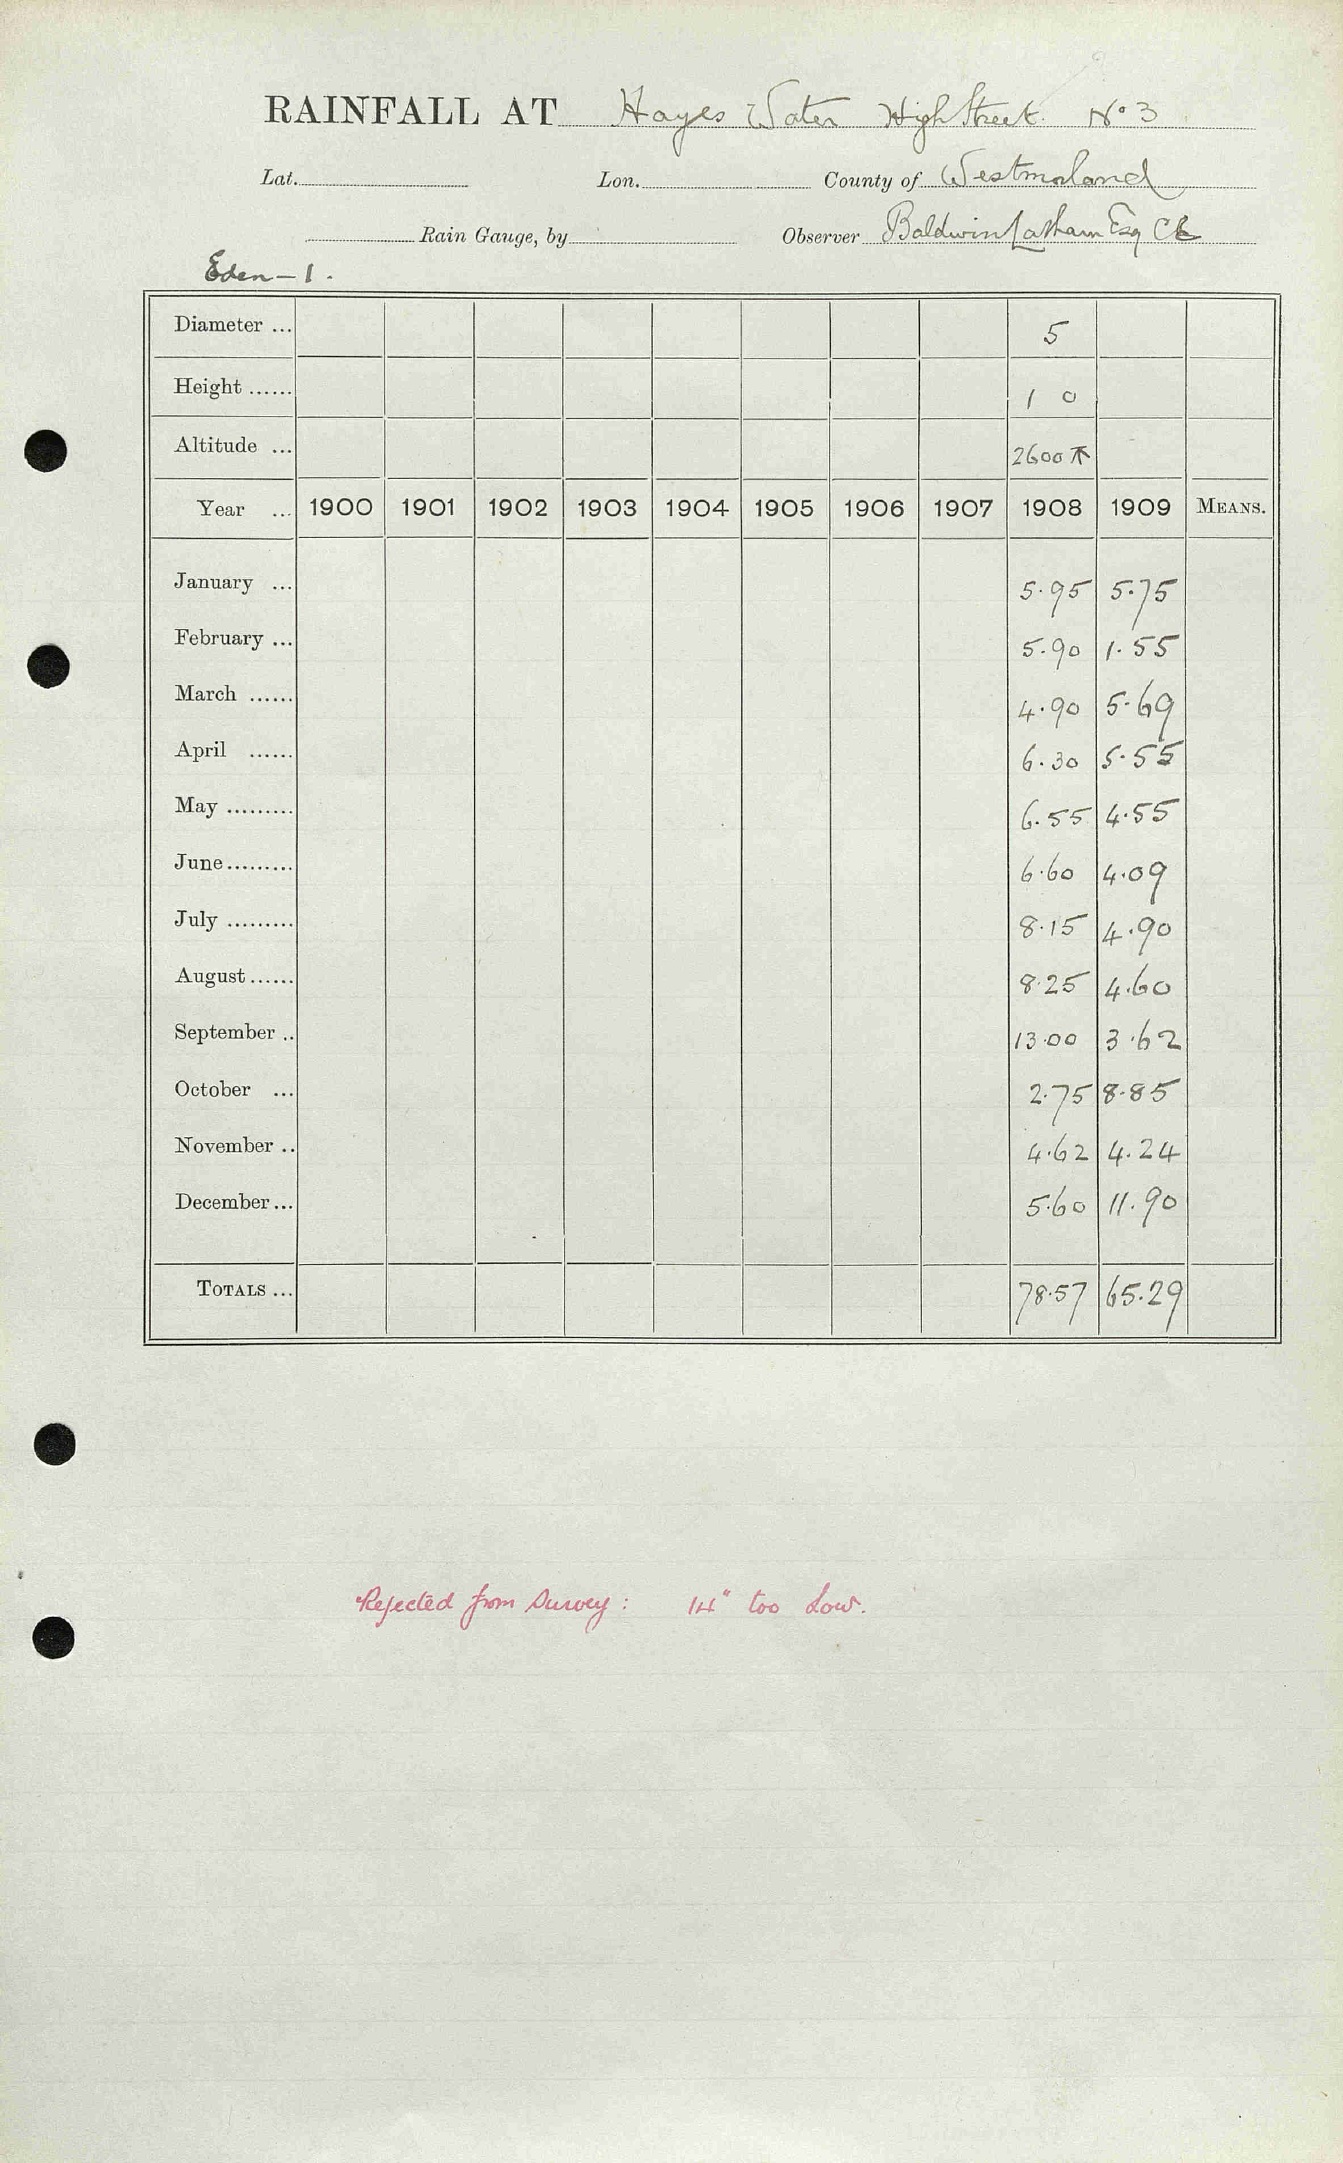 RAINFALL AT Hayes Water High Street No 3
Lat. Lon. County of Westmorland
Rain Gauge, by Observer Baldwin Latham Esq CE
Eden - 1.
Diameter ... 5
Height ...... 1 0
Altitude ... 2600
Year ... 1900 1901 1902 1903 1904 1905 1906 1907 1908 1909 MEANS.
January ... 5.95 5.75
February ... 5.90 1.55
March ...... 4.90 5.69
April ...... 6.30 5.55
May ......... 6.55 4.55
June ......... 6.60 4.09
July ......... 8.15 4.90
August ...... 8.25 4.60
September .. 13.00 3.62
October ... 2.75 8.85
November .. 4.62 4.24
December ... 5.60 11.90
TOTALS ... 78.57 65.29
Rejected from Survey : 14" too low.